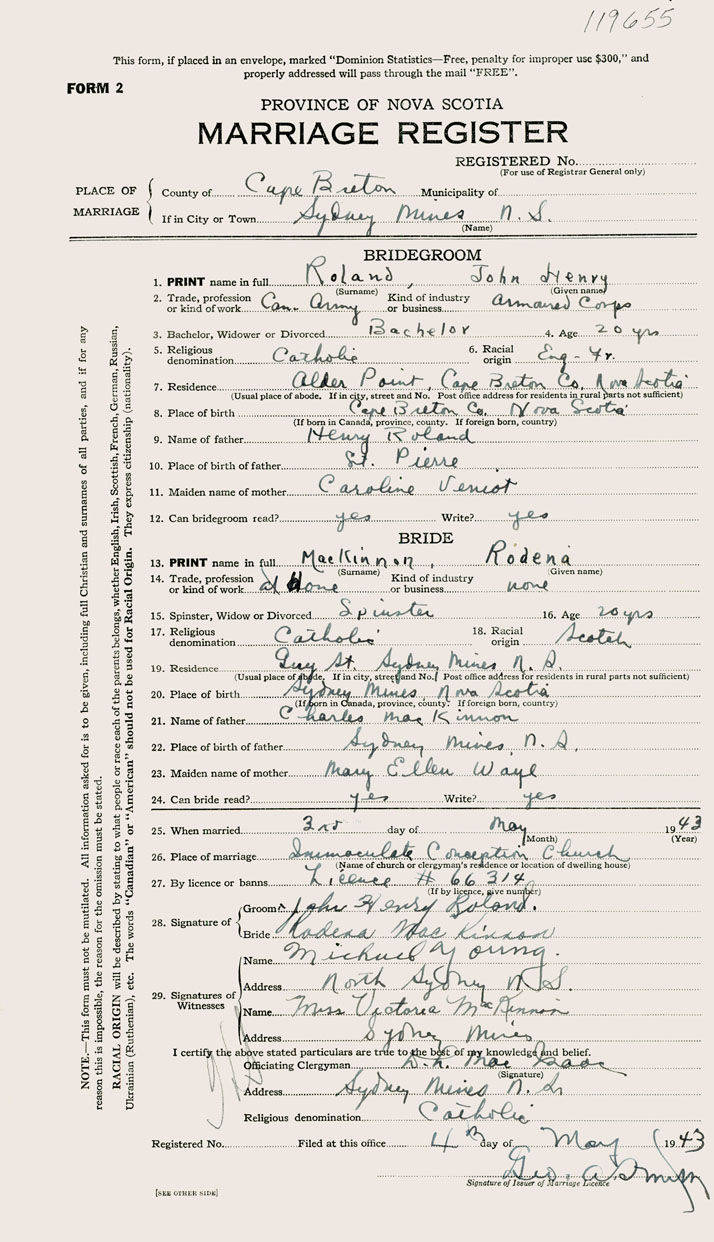 119655
This form, if placed in an envelope, marked "Dominion Statistics—Free, penalty for improper use $300," and
properly addressed will pass through the mail "FREE".
FORM 2
PROVINCE OF NOVA SCOTIA
MARRIAGE REGISTER
REGISTERED No.
(For use of Registrar General only)
PLACE OF MARRIAGE
County of Cape Breton Municipality of
If in City or Town Sydney Mines N. S.
(Name)
BRIDEGROOM
1. PRINT name in full Roland, John Henry
(Surname) (Given name)
2. Trade, profession or kind of work Can. Army Kind of industry or business Armoured Corps
3. Bachelor, Widower or Divorced Bachelor 4. Age 20 yrs
5. Religious denomination Catholic 6. Racial origin Eng - Fr.
7. Residence Alder Point, Cape Breton Co, Nova Scotia
(Usual place of abode. If in city, street and No. Post office address for residents in rural parts not sufficient)
8. Place of birth Cape Breton Co. Nova Scotia
(If born in Canada, province, county. If foreign born, country)
9. Name of father Henry Roland
10. Place of birth of father St. Pierre
11. Maiden name of mother Caroline Veniot
12. Can bridegroom read? yes Write? yes
BRIDE
13. PRINT name in full MacKinnon, Rodena
(Surname) (Given name)
14. Trade, profession or kind of work at Home Kind of industry or business none
15. Spinster, Widow or Divorced Spinster 16. Age 20 yrs
17. Religious denomination Catholic 18. Racial origin Scotch
19. Residence Guy St. Sydney Mines N. S.
(Usual place of abode. If in city, street and No. Post office address for residents in rural parts not sufficient)
20. Place of birth Sydney Mines, Nova Scotia
(If born in Canada, province, county. If foreign born, country)
21. Name of father Charles Mac Kinnon
22. Place of birth of father Sydney Mines, N. S.
23. Maiden name of mother Mary Ellen
24. Can bride read? yes Write? yes
25. When married 3rd day of May 1943
(Month) (Year)
26. Place of marriage Immaculate Conception Church
(Name of church or clergyman's residence or location of dwelling house)
27. By licence or banns Licence # 66314
(If by licence, give number)
28. Signature of
Groom John Henry Roland.
Bride Rodena Mac Kinnon
29. Signatures of Witnesses
Name Michael Young.
Address North Sydney N. S.
Name Miss Victoria McKinnon
Address Sydney Mines
I certify the above stated particulars are true to the best of my knowledge and belief.
Officiating Clergyman Mac Isaac
(Signature)
Address Sydney Mines N. S.
Religious denomination Catholic
Registered No. Filed at this office 4th day of May 1943
Geo.
Signature of Issuer of Marriage Licence
[SEE OTHER SIDE]
NOTE.—This form must not be mutilated. All information asked for is to be given, including full Christian and surnames of all parties, and if for any
reason this is impossible, the reason for the omission must be stated.
RACIAL ORIGIN will be described by stating to what people or race each of the parents belongs, whether English, Irish, Scottish, French, German, Russian,
Ukrainian (Ruthenian), etc. The words "Canadian" or "American" should not be used for Racial Origin. They express citizenship (nationality).